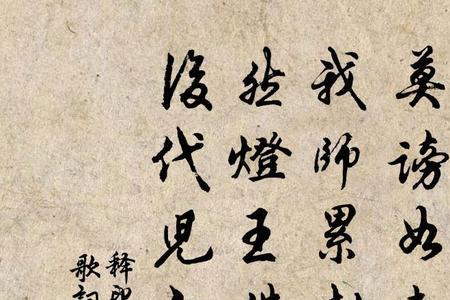 莫謗如
我師累
然燈王
後代兒
釋
歌